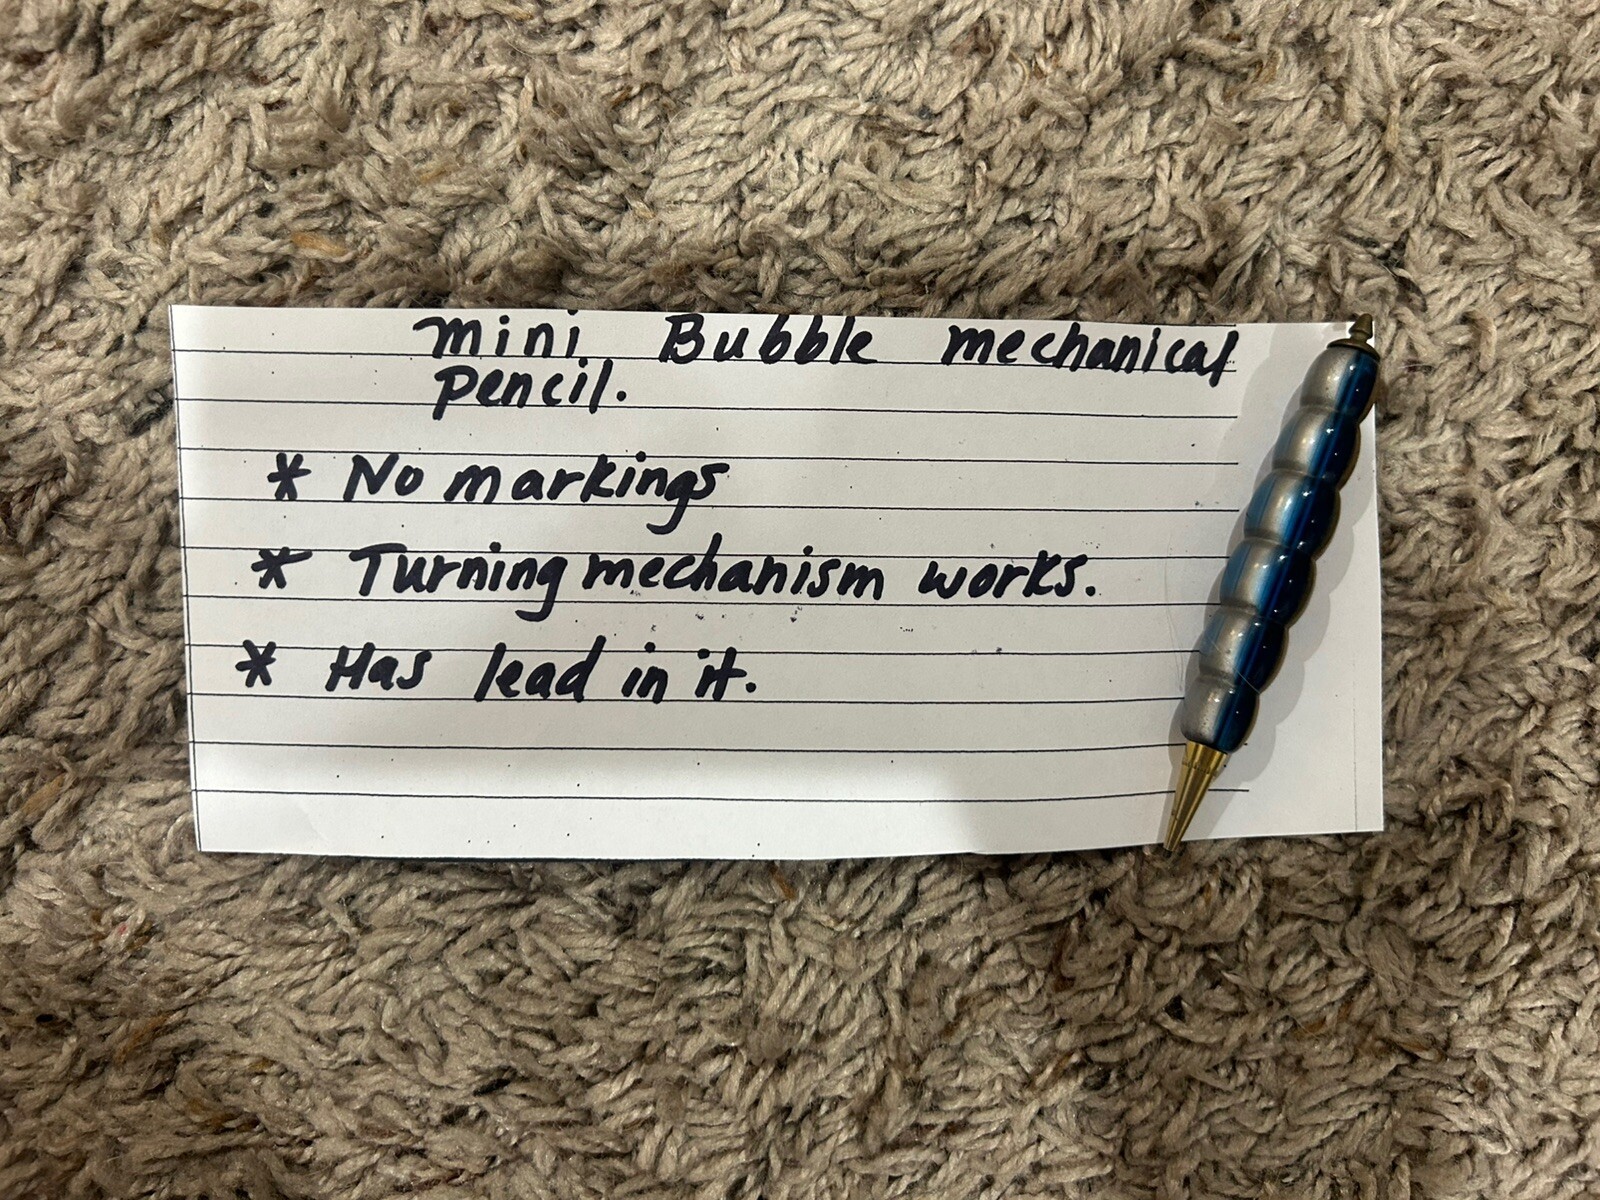 mini Bubble mechanical
pencil.
* No markings
* Turning mechanism works.
* Has lead in it.